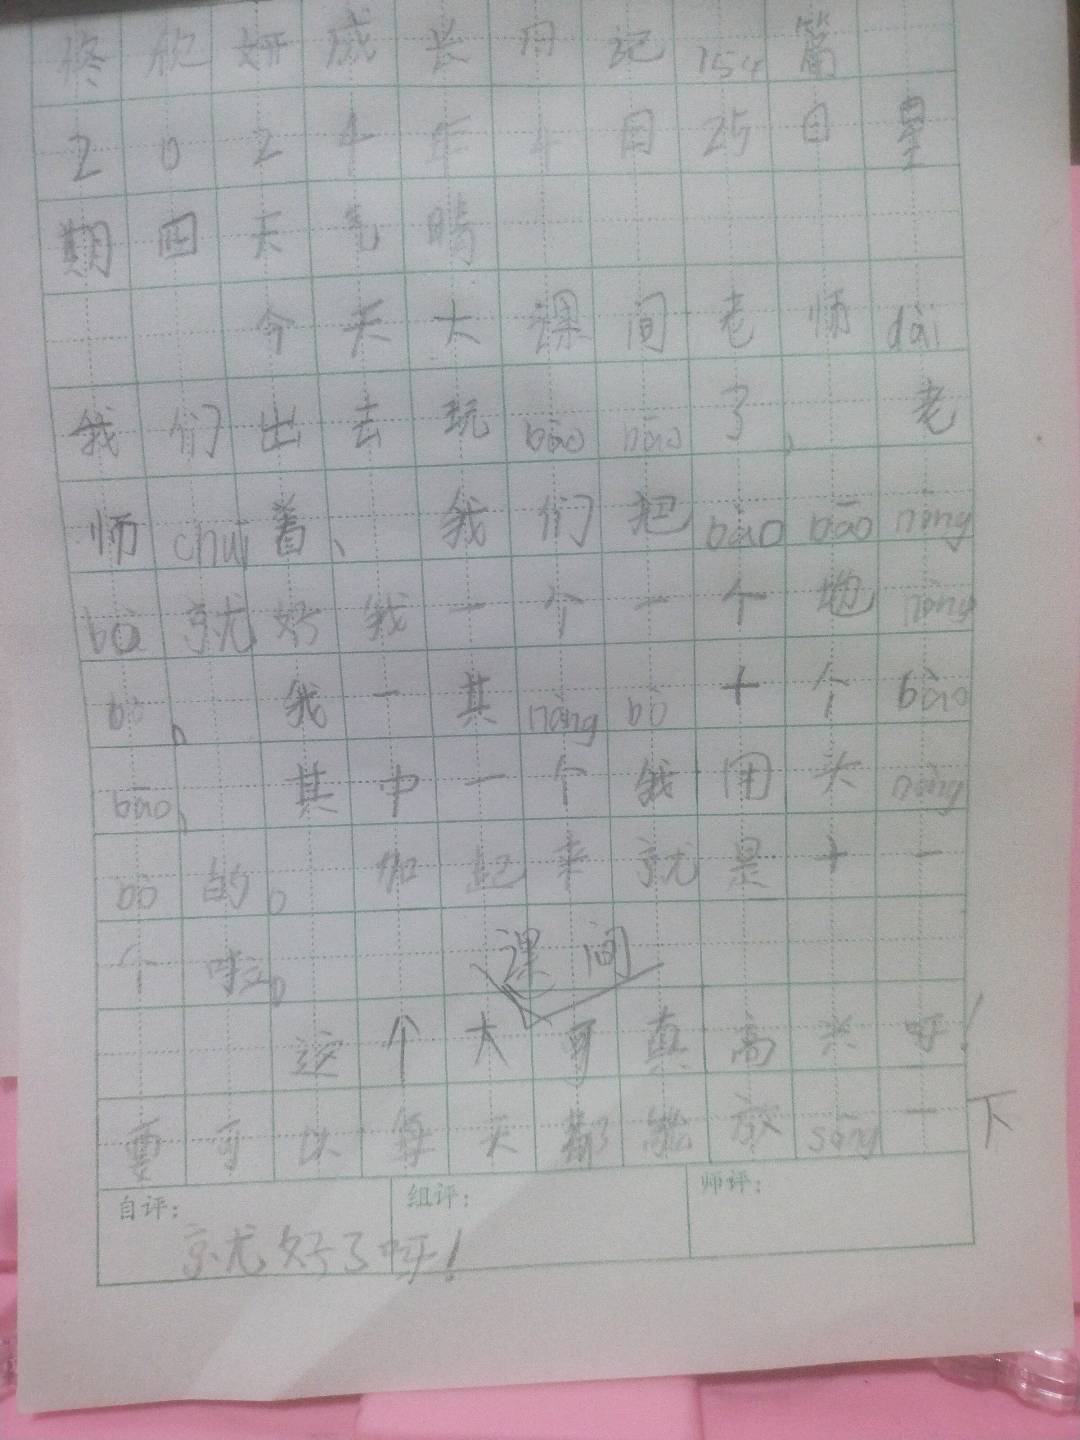 佟欣妍成长日记154篇
2024年4月25日星
期四天气晴
今天大课间老师dài
我们出去玩pāo pāo了、老
师chuī着、我们把pāo pāo nòng
pò就好我一个一个地nòng
pò、我一其nòng pò十个pāo
pāo、其中一个我用头nòng
pò的。加起来就是十一
个啦。
这个大课间可真高兴呀!
要可以每天都能放sōng一下
就好了呀!
自评: 组评: 师评: